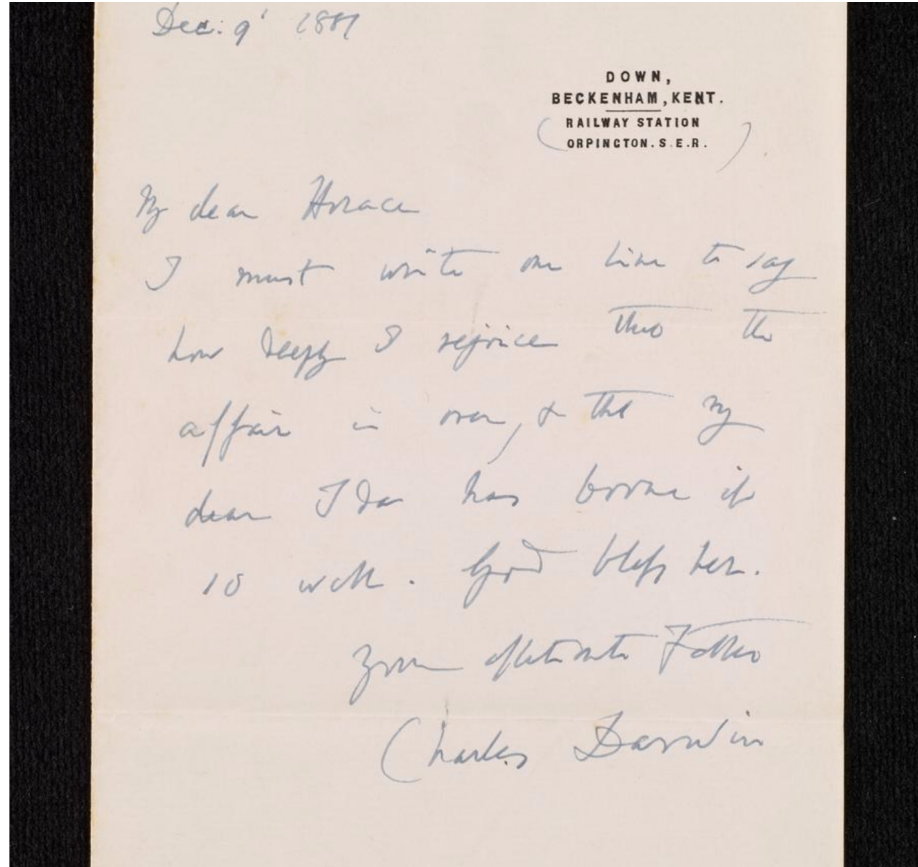 Dec. 9' 1881
DOWN,
BECKENHAM, KENT.
(RAILWAY STATION
ORPINGTON. S.E.R.)
My dear Horace
I must write one line to say
how deeply I rejoice that the
affair is over, & that my
dear Ida has borne it
so well. God bless her.
Your affectionate Father
Charles Darwin